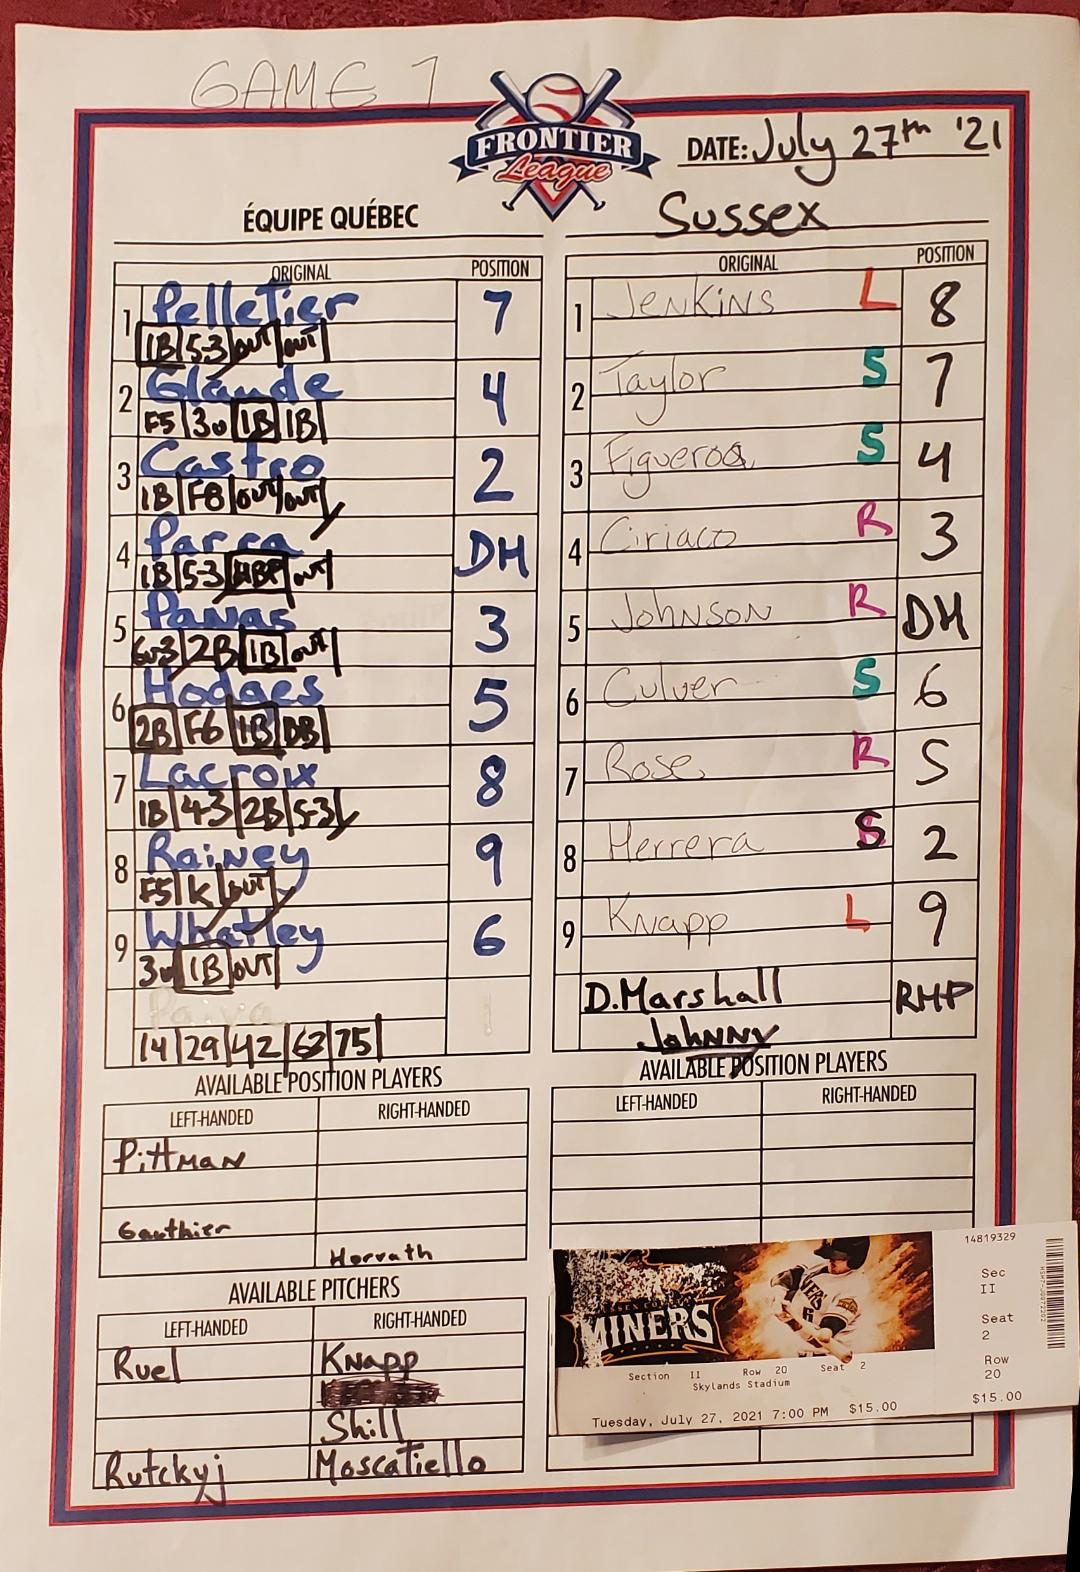 GAME 1
FRONTIER
League
DATE: July 27th '21
ÉQUIPE QUÉBEC
Sussex
ORIGINAL POSITION
1 Pelletier 7
1B 5-3 OUT OUT
2 Glaude 4
F5 3u 1B 1B
3 Castro 2
1B F8 OUT OUT
4 Parra DH
1B 5-3 HBP OUT
5 Panas 3
6u3 2B 1B OUT
6 Hodges 5
2B F6 1B DB
7 Lacroix 8
1B 4-3 2B 5-3
8 Rainey 9
F5 K OUT
9 Whatley 6
3u 1B OUT
Paiva 1
14 29 42 63 75
ORIGINAL POSITION
1 Jenkins L 8
2 Taylor S 7
3 Figueroa S 4
4 Ciriaco R 3
5 Johnson R DH
6 Culver S 6
7 Rose R 5
8 Herrera S 2
9 Knapp L 9
D. Marshall RHP
Johnny
AVAILABLE POSITION PLAYERS
LEFT-HANDED RIGHT-HANDED
Pittman
Gauthier
Horvath
AVAILABLE PITCHERS
LEFT-HANDED RIGHT-HANDED
Ruel Knapp
Shill
Rutckyj Moscatiello
AVAILABLE POSITION PLAYERS
LEFT-HANDED RIGHT-HANDED
MINERS
Section II Row 20 Seat 2
Skylands Stadium
Tuesday, July 27, 2021 7:00 PM $15.00
14819329
Sec
II
Seat
2
Row
20
$15.00